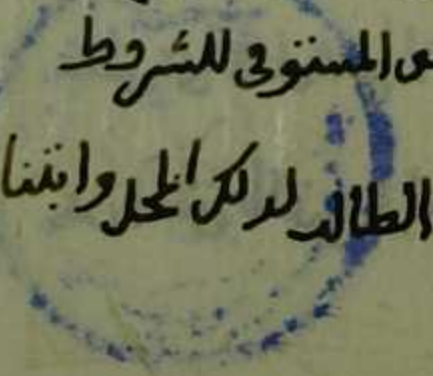 المستوفى للشروط
الطالب لذلك المحل وابتنا